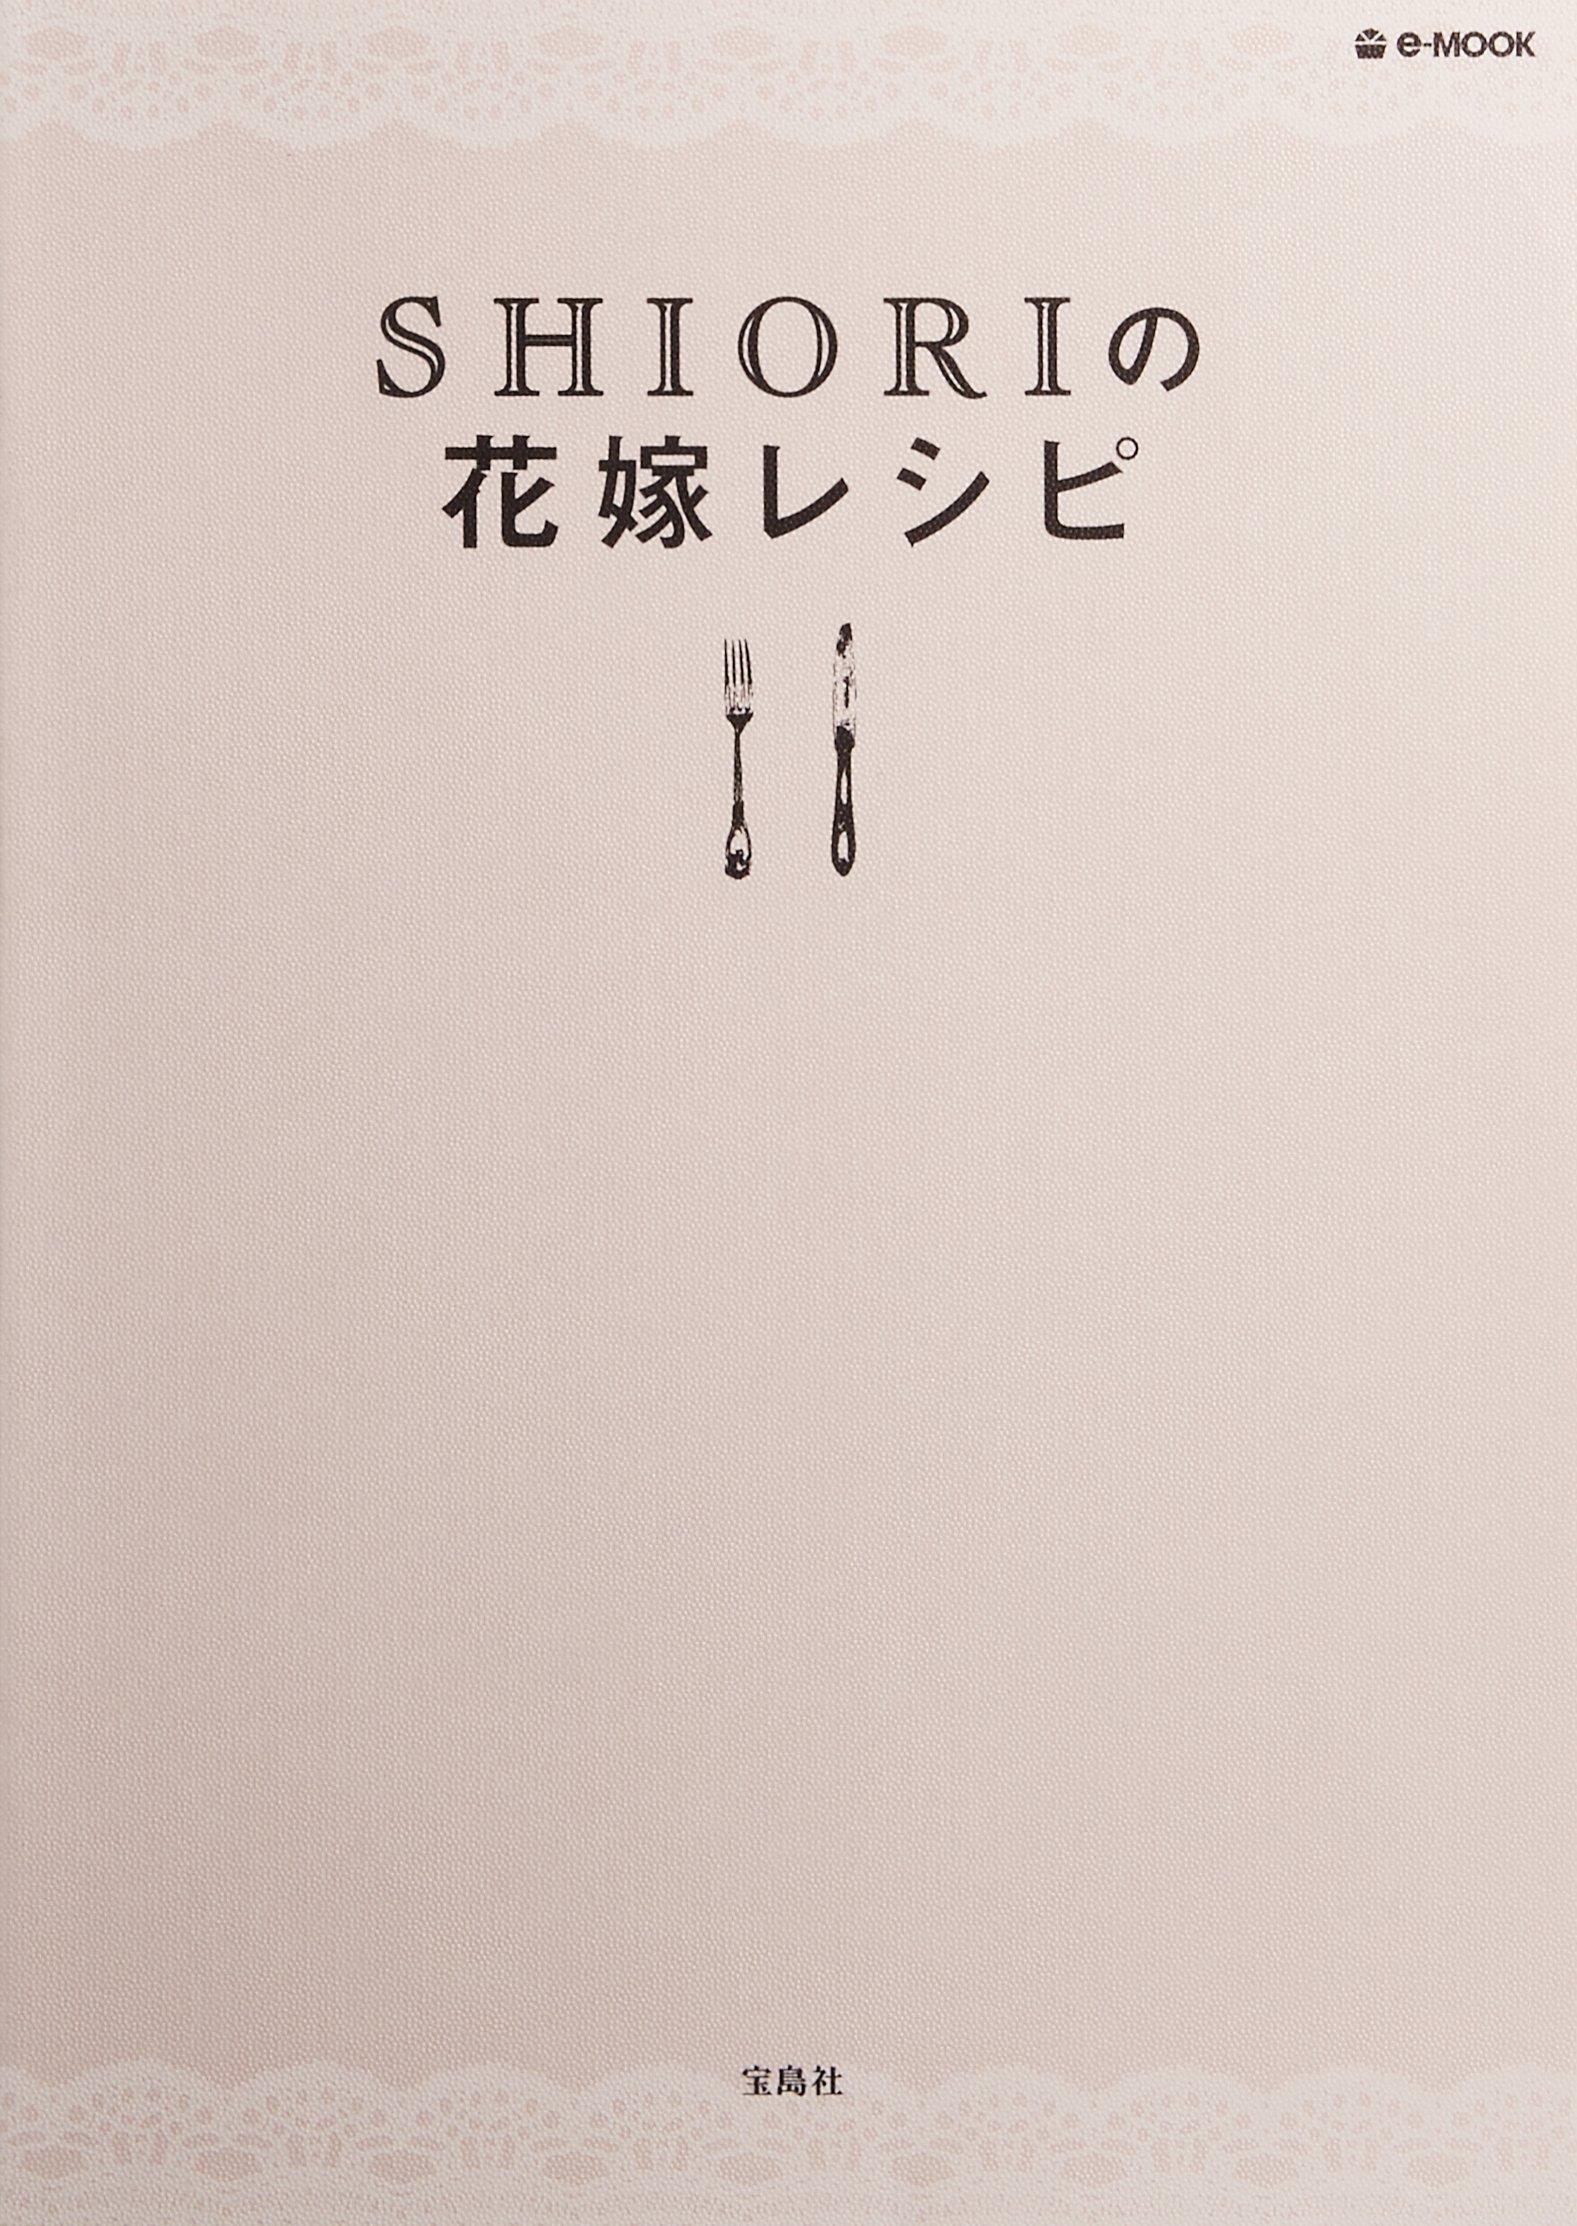 e-MOOK
SHIORIの
花嫁レシピ
宝島社